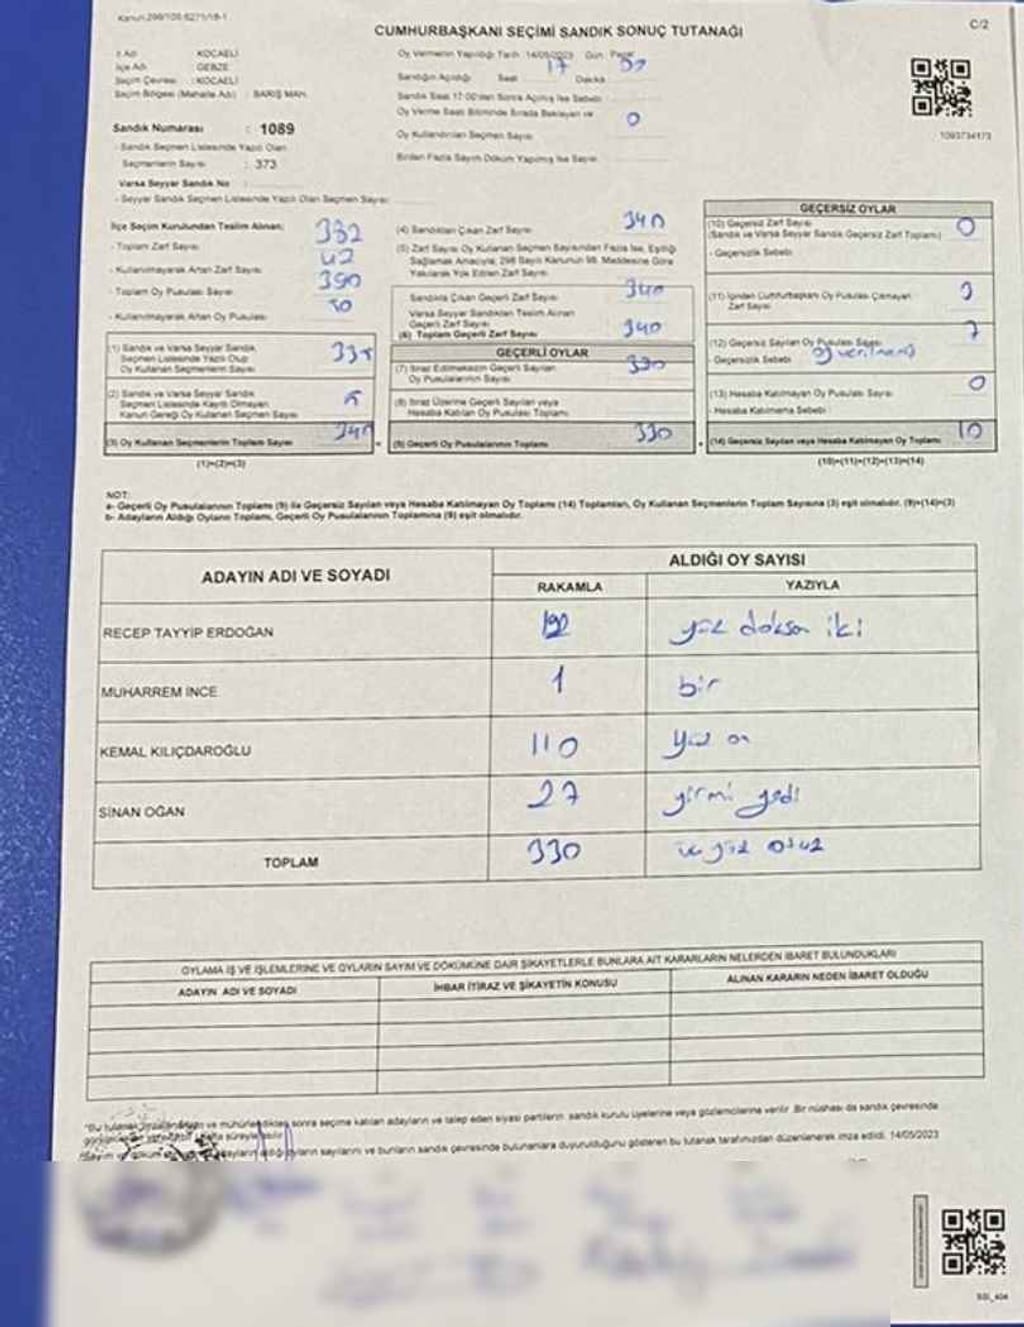 Kanun 298/108 6271/18-1
C/2
CUMHURBAŞKANI SEÇİMİ SANDIK SONUÇ TUTANAĞI
İl Adı KOCAELİ
İlçe Adı GEBZE
Seçim Çevresi : KOCAELİ
Seçim Bölgesi (Mahalle Adı) : BARIŞ MAH.
Sandık Numarası : 1089
- Sandık Seçmen Listesinde Yazılı Olan
Seçmenlerin Sayısı : 373
Varsa Seyyar Sandık No :
- Seyyar Sandık Seçmen Listesinde Yazılı Olan Seçmen Sayısı
Oy Vermenin Yapıldığı Tarih 14/05/2023 Gün: Pazar
Sandığın Açıldığı Saat 17 Dakika
Sandık Saat 17:00'den Sonra Açılmış İse Sebebi
Oy Verme Saati Bitiminde Sırada Bekleyen ve
Oy Kullandırılan Seçmen Sayısı 0
Birden Fazla Sayım Döküm Yapılmış İse Sayısı
1093734173
İlçe Seçim Kurulundan Teslim Alınan;
- Toplam Zarf Sayısı 382
- Kullanılmayarak Artan Zarf Sayısı 42
- Toplam Oy Pusulası Sayısı 390
- Kullanılmayarak Artan Oy Pusulası 50
(1) Sandık ve Varsa Seyyar Sandık
Seçmen Listesinde Yazılı Olup
Oy Kullanan Seçmenlerin Sayısı 335
(2) Sandık ve Varsa Seyyar Sandık
Seçmen Listesinde Kayıtlı Olmayan
Kanun Gereği Oy Kullanan Seçmen Sayısı 5
(3) Oy Kullanan Seçmenlerin Toplam Sayısı 340
(1)+(2)=(3)
(4) Sandıktan Çıkan Zarf Sayısı 340
(5) Zarf Sayısı Oy Kullanan Seçmen Sayısından Fazla İse, Eşitliği
Sağlamak Amacıyla; 298 Sayılı Kanunun 98. Maddesine Göre
Yakılarak Yok Edilen Zarf Sayısı
Sandıkta Çıkan Geçerli Zarf Sayısı 340
Varsa Seyyar Sandıktan Teslim Alınan
Geçerli Zarf Sayısı
(6) Toplam Geçerli Zarf Sayısı 340
GEÇERLİ OYLAR
(7) İtiraz Edilmeksizin Geçerli Sayılan
Oy Pusulalarının Sayısı 330
(8) İtiraz Üzerine Geçerli Sayılan veya
Hesaba Katılan Oy Pusulası Toplamı
(9) Geçerli Oy Pusulalarının Toplamı 330
GEÇERSİZ OYLAR
(10) Geçersiz Zarf Sayısı
(Sandık ve Varsa Seyyar Sandık Geçersiz Zarf Toplamı) 0
- Geçersizlik Sebebi
(11) İçinden Cumhurbaşkanı Oy Pusulası Çıkmayan
Zarf Sayısı 3
(12) Geçersiz Sayılan Oy Pusulası Sayısı 7
- Geçersizlik Sebebi
(13) Hesaba Katılmayan Oy Pusulası Sayısı 0
- Hesaba Katılmama Sebebi
(14) Geçersiz Sayılan veya Hesaba Katılmayan Oy Toplamı 10
(10)+(11)+(12)+(13)=(14)
NOT:
a- Geçerli Oy Pusulalarının Toplamı (9) ile Geçersiz Sayılan veya Hesaba Katılmayan Oy Toplamı (14) Toplamları, Oy Kullanan Seçmenlerin Toplam Sayısına (3) eşit olmalıdır. (9)+(14)=(3)
b- Adayların Aldığı Oyların Toplamı, Geçerli Oy Pusulalarının Toplamına (9) eşit olmalıdır.
ADAYIN ADI VE SOYADI
ALDIĞI OY SAYISI
RAKAMLA YAZIYLA
RECEP TAYYİP ERDOĞAN 192 yüz doksan iki
MUHARREM İNCE 1 bir
KEMAL KILIÇDAROĞLU 110 yüz on
SİNAN OĞAN 27 yirmi yedi
TOPLAM 330 üç yüz otuz
OYLAMA İŞ VE İŞLEMLERİNE VE OYLARIN SAYIM VE DÖKÜMÜNE DAİR ŞİKAYETLERLE BUNLARA AİT KARARLARIN NELERDEN İBARET BULUNDUKLARI
ADAYIN ADI VE SOYADI İHBAR İTİRAZ VE ŞİKAYETİN KONUSU ALINAN KARARIN NEDEN İBARET OLDUĞU
sonra seçime katılan adayların ve talep eden siyasi partilerin sandık kurulu üyelerine veya gözlemcilerine verilir. Bir nüshası da sandık çevresinde
oyların sayılarını ve bunların sandık çevresinde bulunanlara duyurulduğunu gösteren bu tutanak tarafımızdan düzenlenerek imza edildi. 14/05/2023